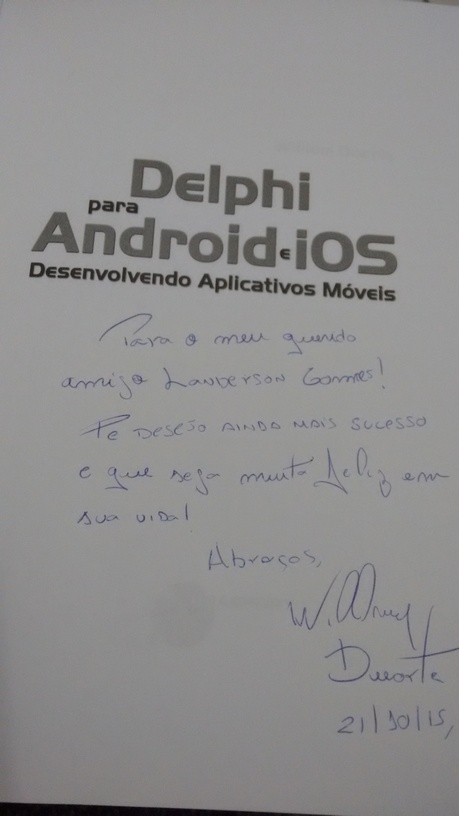 Delphi
para
Android e iOS
Desenvolvendo Aplicativos Móveis
Para o meu querido
amigo Landerson Gomes!
Te desejo ainda mais sucesso
e que seja muito feliz em
sua vida!
Abraços,
W.
Duarte
21/10/15,